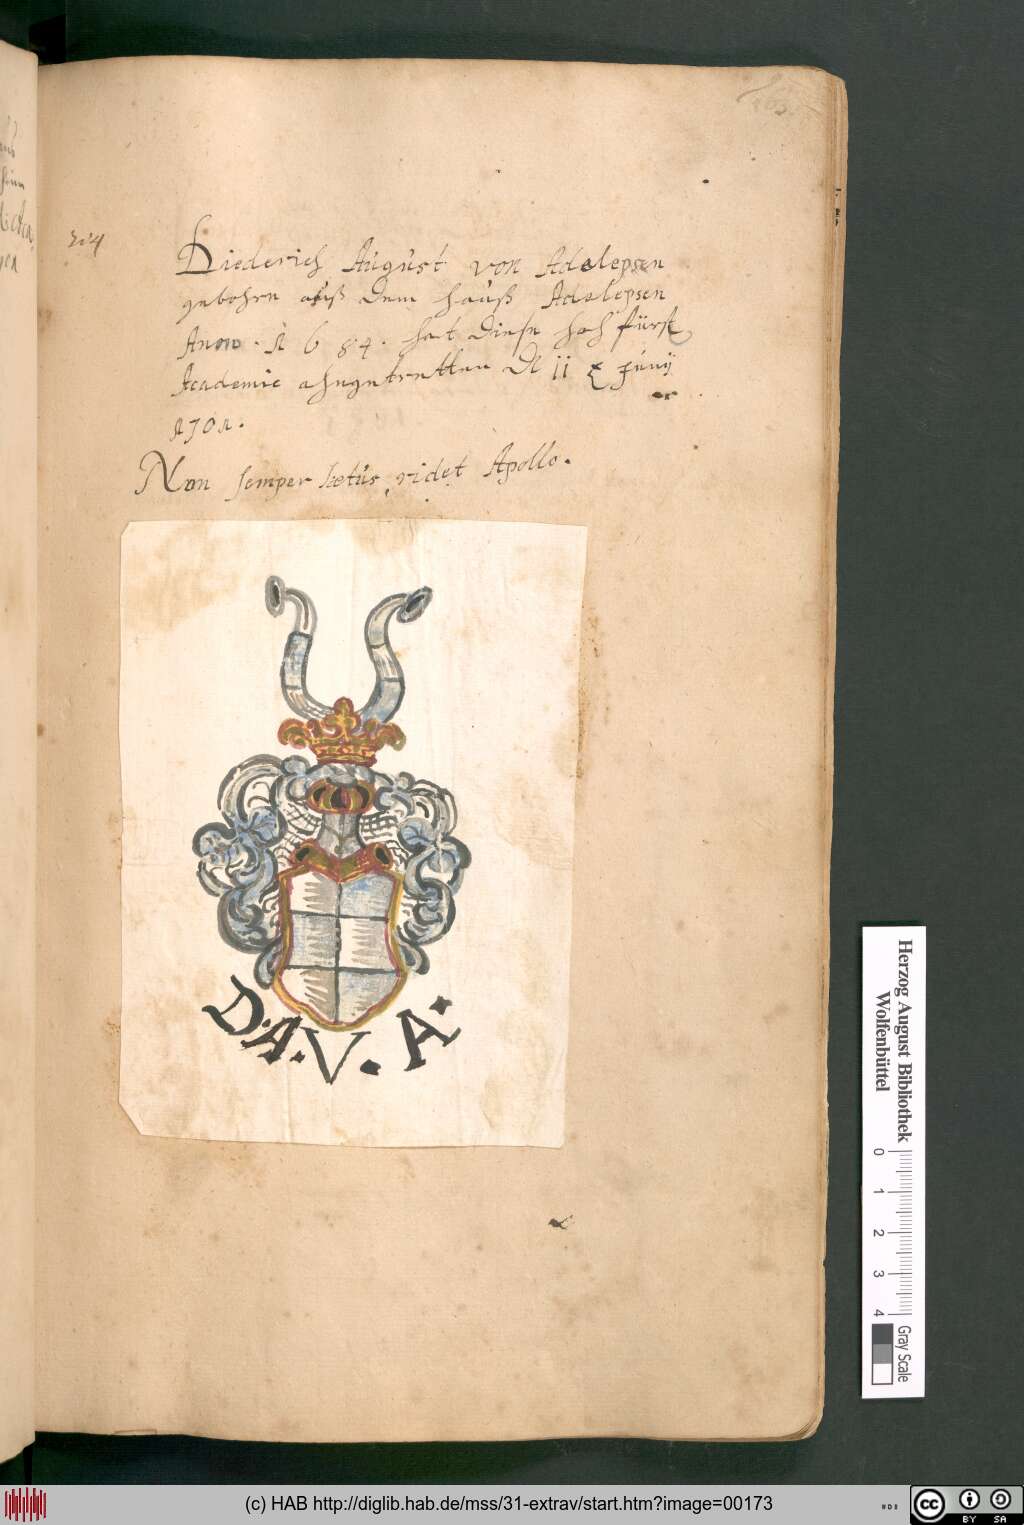 214
Diederich August von Adelepsen
gebohrn auß dem Hauß Adelepsen
Anno . 1 6 8 4 . hat diese hoh fürstl
Academie ahngetretten d 11 Juny
1701.
Non semper lætus ridet Apollo.
D. A. V. A.
Herzog August Bibliothek
Wolfenbüttel
0 1 2 3 4
Gray Scale
(c) HAB http://diglib.hab.de/mss/31-extrav/start.htm?image=00173
cc BY SA